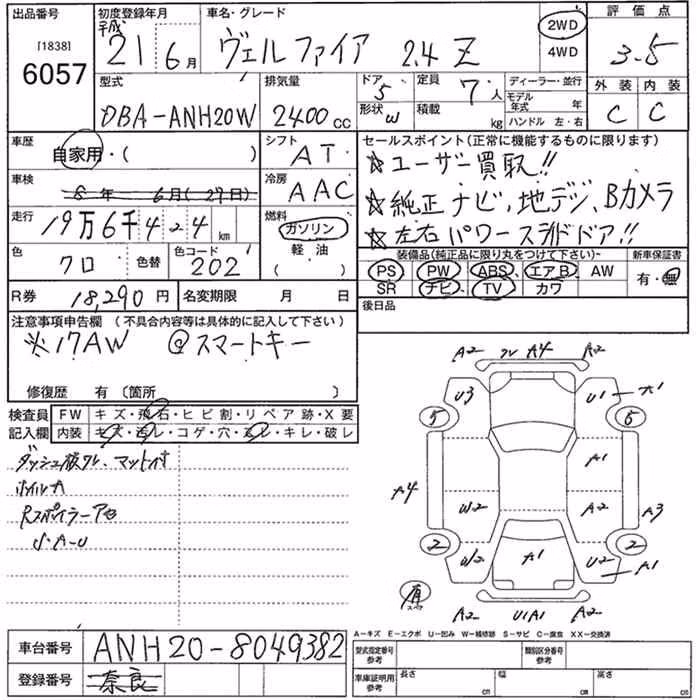 出品番号
[1838]
6057
初度登録年月
平成
21年 6月
車名・グレード
ヴェルファイア 2.4 Z
2WD
4WD
評価点
3.5
外装 内装
C C
型式
DBA-ANH20W
排気量
2400 cc
ドア
5
形状 W
定員
7人
積載 kg
ディーラー・並行
モデル年式 年
ハンドル 左・右
車歴
自家用・( )
シフト
AT
セールスポイント(正常に機能するものに限ります)
☆ユーザー買取!!
☆純正ナビ、地デジ、Bカメラ
☆左右パワースライドドア!!
車検
8年 6月(27日)
冷房
AAC
走行
19万6千424 km
燃料
ガソリン
軽油
( )
色
クロ
色替
色コード
202
装備品(純正品に限り丸をつけて下さい)
PS PW ABS エアB AW
SR ナビ TV カワ
新車保証書
有・無
R券
18,290円
名変期限 月 日
後日品
注意事項申告欄 (不具合内容等は具体的に記入して下さい)
※17AW @スマートキー
修復歴 有 〔箇所 〕
検査員
記入欄
FW キズ・飛石・ヒビ割・リペア跡・X要
内装 キズ・汚レ・コゲ・穴・スレ・キレ・破レ
Rスポイラーア
U・A-U
A2 A4 A2
U3 U1 A1
5 6
A1
A4 W2 A2 A3
2 2
W2 A1 U2 A1
有
スペア
A2 U1A1 A2
A-キズ E-エクボ U-凹み W-補修跡 S-サビ C-腐食 XX-交換済
車台番号
ANH20-8049382
登録番号
奈良
型式指定番号
参考
類別区分番号
参考
車庫証明用
参考
長さ cm
幅 cm
高さ cm